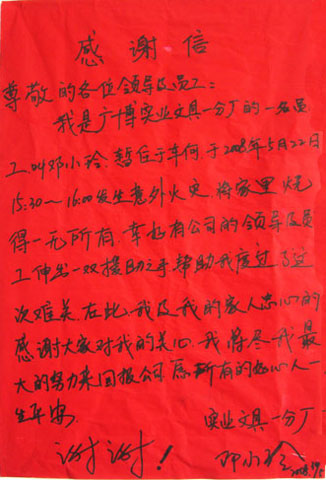 感谢信
尊敬的各位领导及员工：
我是广博实业文具一分厂的一名员
工叫邓小玲，暂住于车何，于2008年5月22日
15:30～16:00发生意外火灾，将家里烧
得一无所有，幸好有公司的领导及员
工伸出一双援助之手，帮助我度过了这
次难关，在此，我及我的家人忠心的
感谢大家对我的关心，我将尽我最
大的努力来回报公司，愿所有的好心人一
生平安
实业文具一分厂
谢谢！ 邓小玲